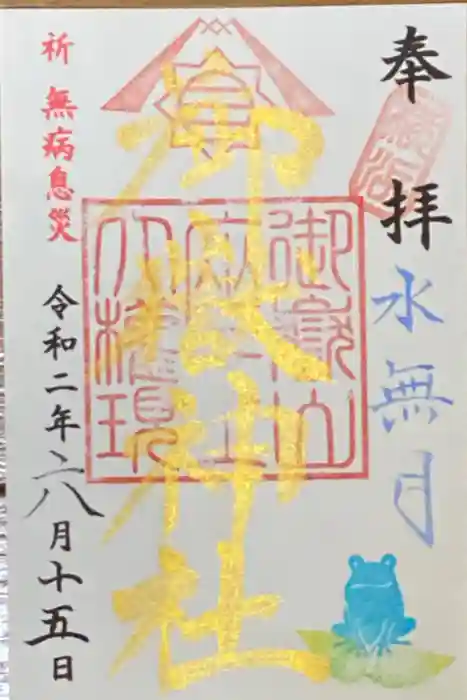 奉拝
水無月
御嶽神社
御嶽山
大権現
祈 無病息災
令和二年六月十五日